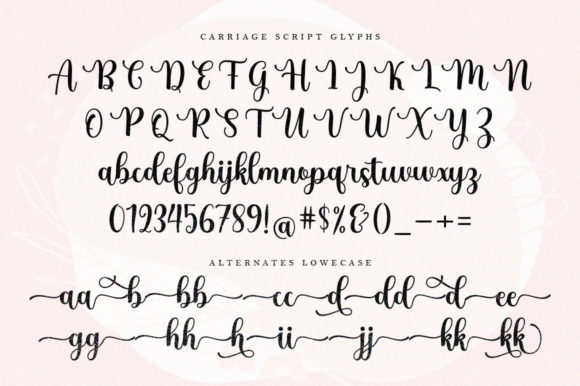 CARRIAGE SCRIPT GLYPHS
A B C D E F G H I J K L M N
O P Q R S T U V W X Y Z
abcdefghijklmnopqrstuvwxyz
0123456789!@#$%&()_-+=
ALTERNATES LOWECASE
aa b bb cc d dd d ee
gg hh h ii jj kk kk